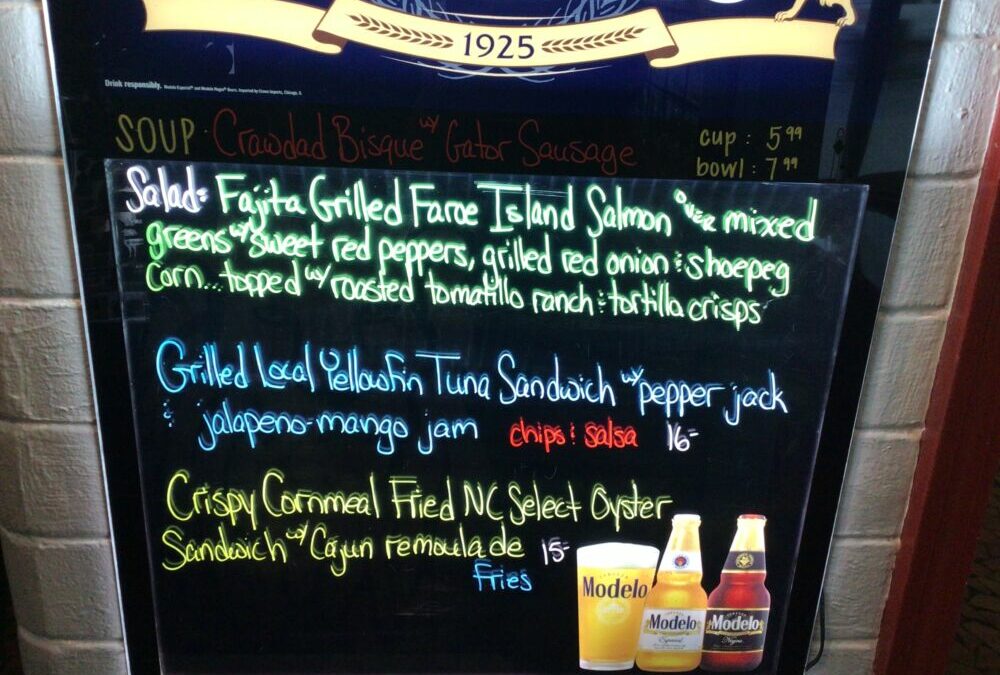 1925
Drink responsibly. Modelo Especial® and Modelo Negra® Beers. Imported by Crown Imports, Chicago, IL
SOUP: Crawdad Bisque w/ Gator Sausage cup: 5.99
bowl: 7.99
Salad: Fajita Grilled Faroe Island Salmon over mixed
greens w/ sweet red peppers, grilled red onion & shoepeg
corn... topped w/ roasted tomatillo ranch & tortilla crisps
Grilled Local Yellowfin Tuna Sandwich w/ pepper jack
& jalapeno-mango jam chips & salsa 16-
Crispy Cornmeal Fried NC Select Oyster
Sandwich w/ Cajun remoulade 15-
Fries
Modelo
Modelo
Especial
Modelo
Negra